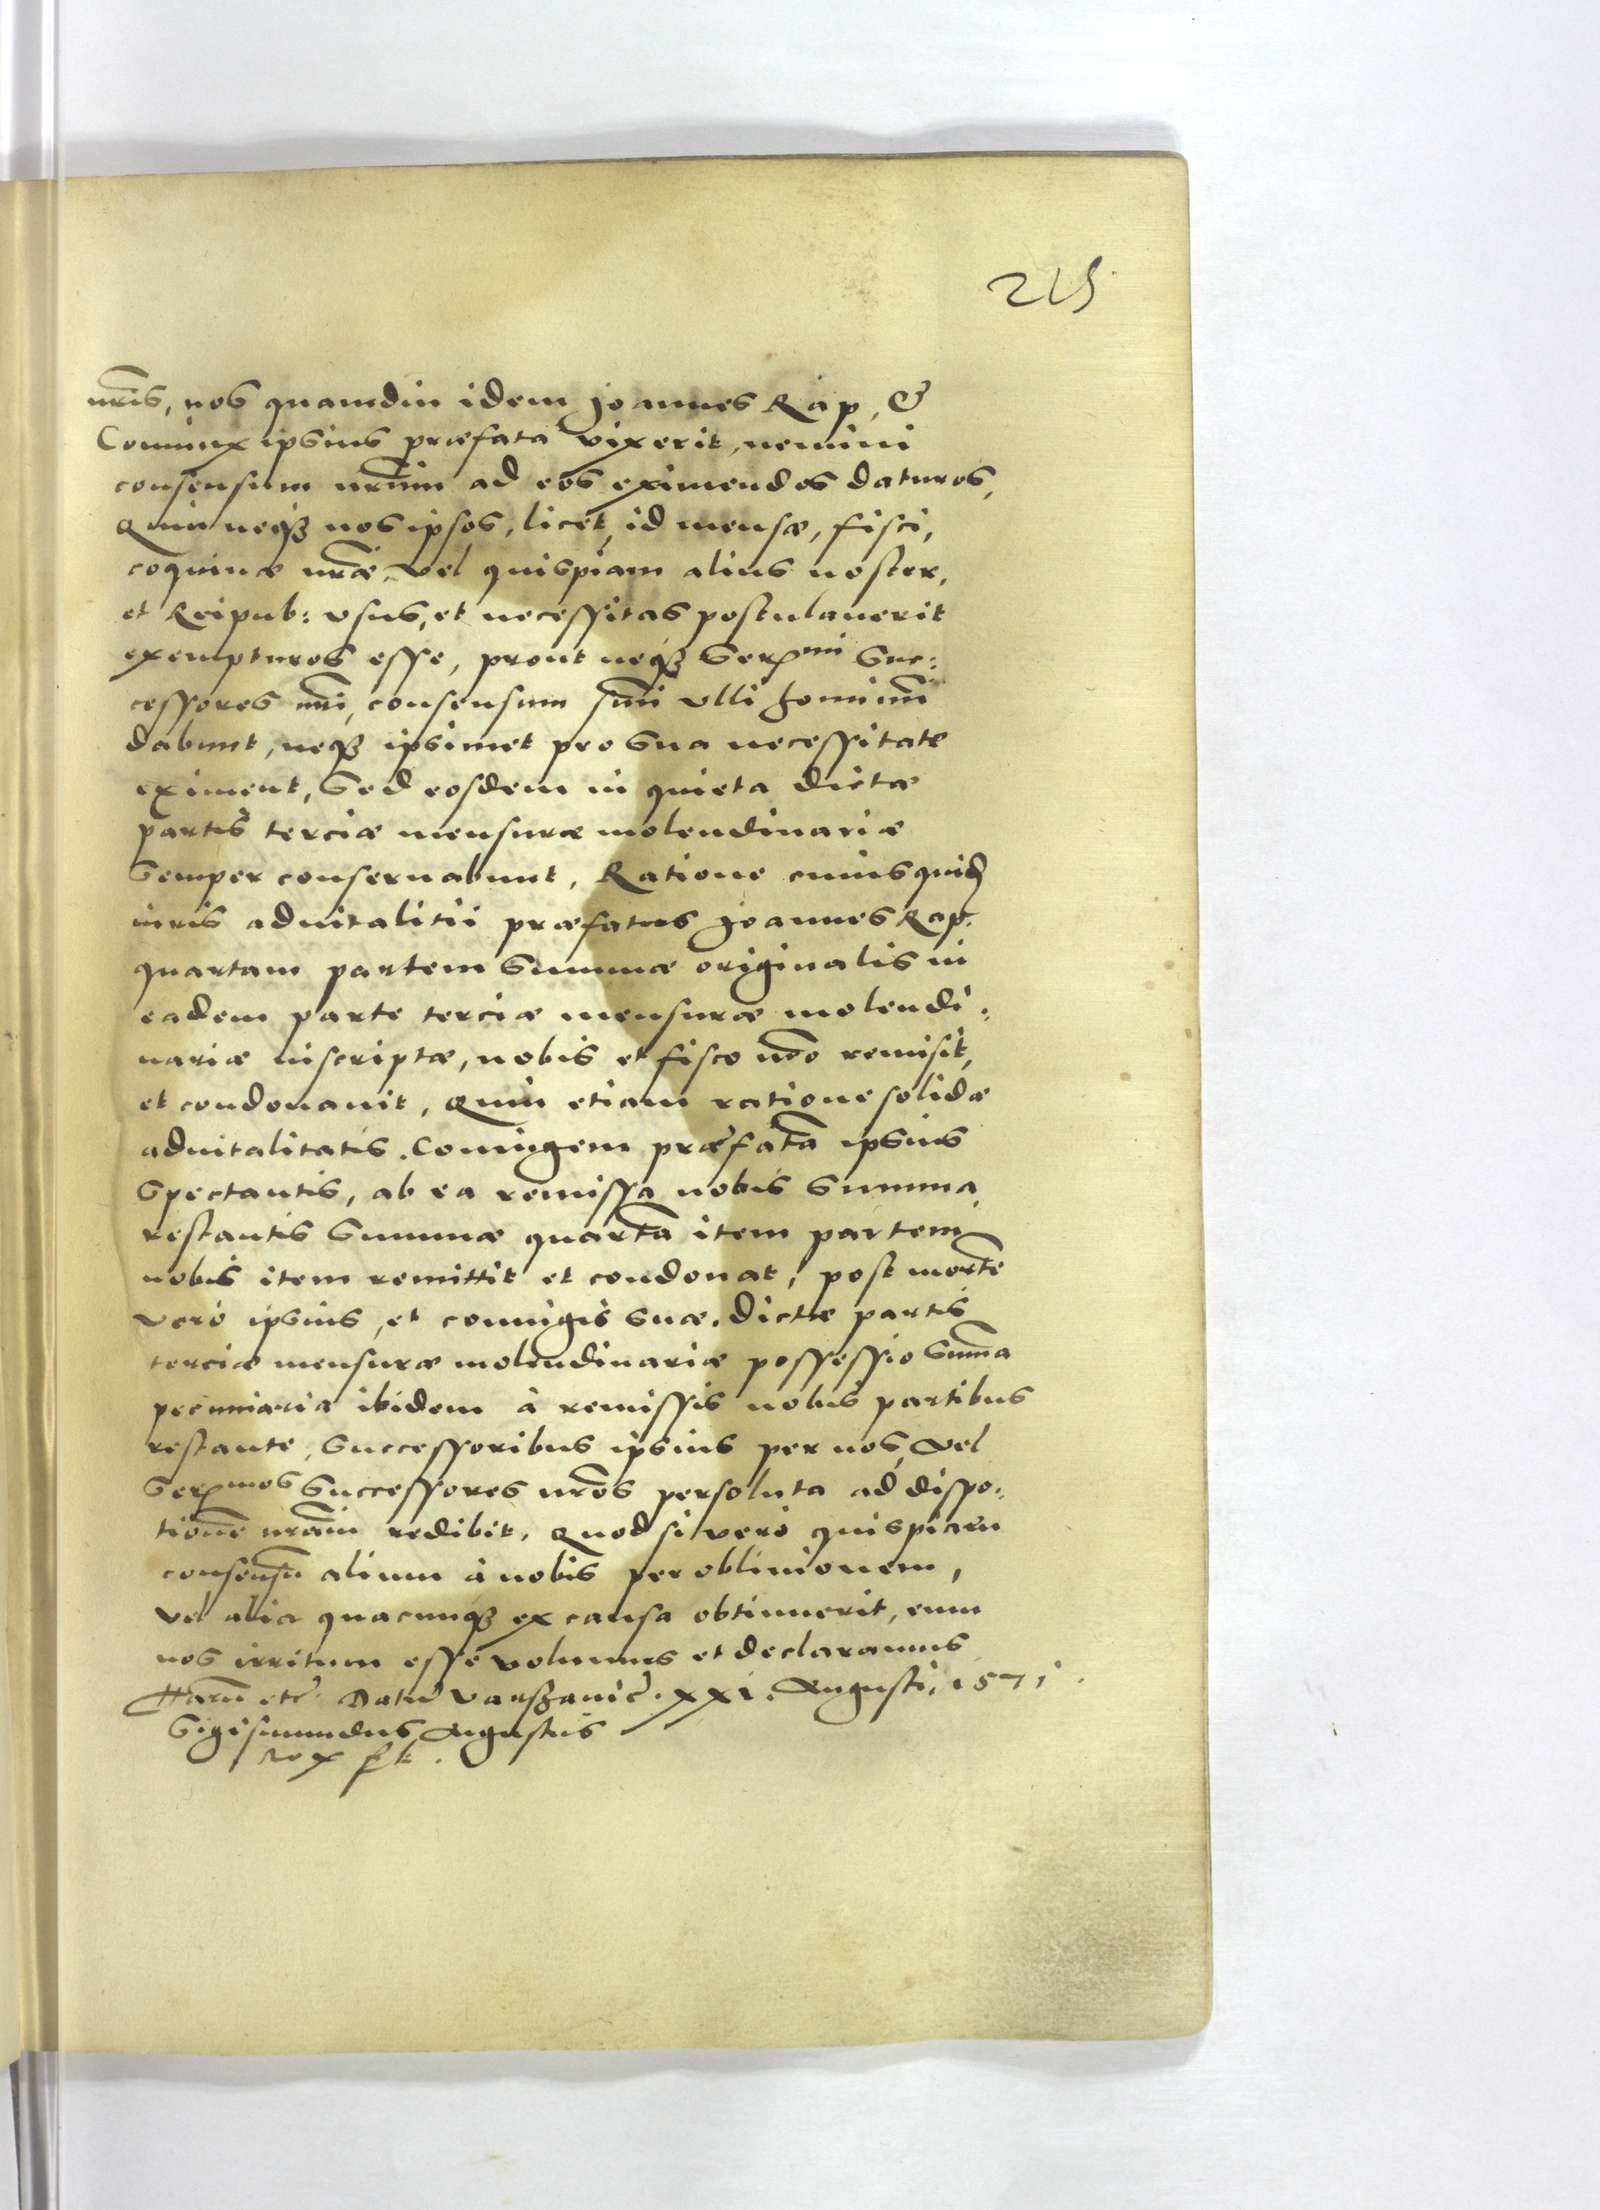 215
nr̃is, nos quamdiu idem Joannes Rap, &
Coniunx ipsius præfata vixerit, nemini
consensum nr̃um ad eos eximendos daturos,
Quin neqȝ nos ipsos, licet, id mensæ, fisci,
coquinæ nr̃æ, vel quispiam alius noster,
et Reipub: vsus, et necessitas postulauerit
exempturos esse, prout neqȝ Serᵐⁱ Suc:
cessores nr̃i, consensum suũ vlli hominũ
dabunt, neqȝ ipsimet pro sua necessitate
eximent, Sed eosdem in quieta dictæ
partis terciæ mensuræ molendinariæ
Semper conseruabunt, Ratione cuius quid̃
iuris aduitalitii præfatus Joannes Rap.
quartam partem summæ originalis in
eadem parte terciæ mensuræ molendi:
nariæ inscriptæ, nobis et fisco nr̃o remisit,
et condonauit, Quin etiam ratione solidæ
aduitalitatis. Coniugem præfatã ipsius
spectantis, ab ea remissa nobis summa,
restantis summæ quartã item partem
nobis item remittit et condonat, post mortẽ
verò ipsius, et coniugis suæ. dictæ partis
terciæ mensuræ molendinariæ possessio summa
pecuniaria ibidem à remissis nobis partibus
restante, Successoribus ipsius per nos, vel
Serᵐᵒˢ Successores nr̃os persoluta ad dispo:
tionẽ nr̃am redibit. Quod si verò quispiam
consensũ alium à nobis per obliuionem,
vel alia quacunqȝ ex causa obtinuerit, eum
nos irritum esse volumus et declaramus
Harũ etc̃. Datũ Varszauiæ. xxi. Augusti, 1571.
Sigismundus Augustus
Rex sst.